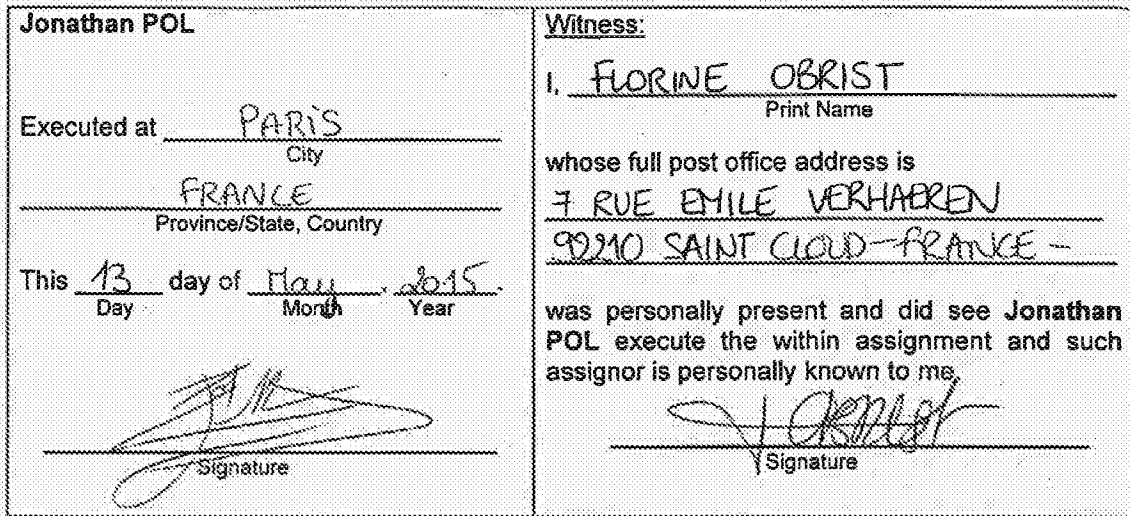 Jonathan POL
Executed at PARIS
City
FRANCE
Province/State, Country
This 13 day of May, 2015.
Day Month Year
Signature
Witness:
I, FLORINE OBRIST
Print Name
whose full post office address is
7 RUE EMILE VERHAEREN
92210 SAINT CLOUD - FRANCE -
was personally present and did see Jonathan
POL execute the within assignment and such
assignor is personally known to me.
Signature